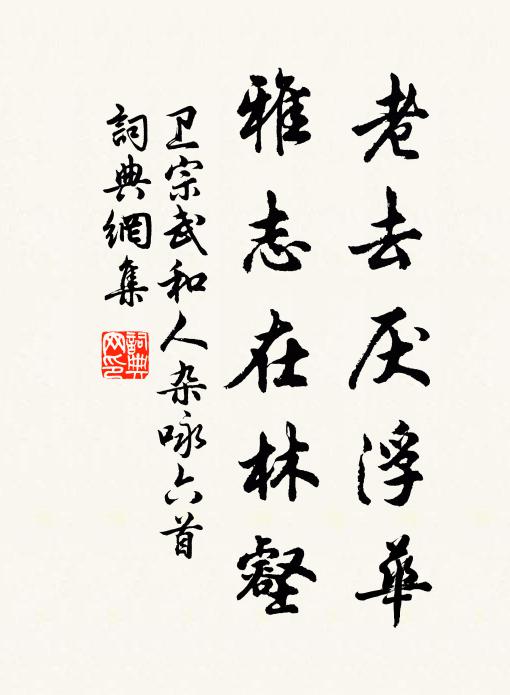 老去厌浮華
雅志在林壑
卫宗武和人杂咏六首
詞典網集
詞典網印